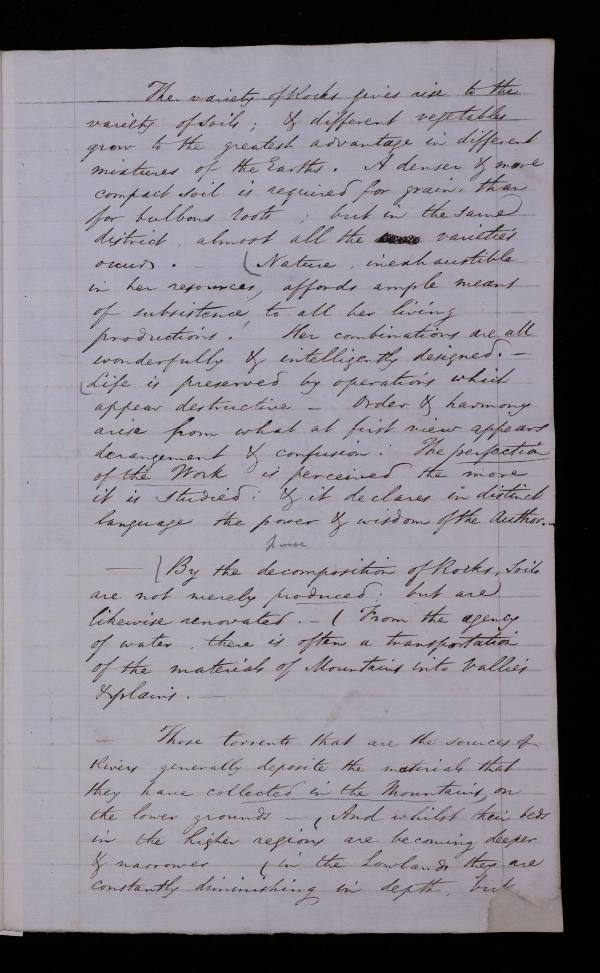 The variety of Rocks gives rise to the
variety of Soils; & different vegetables
grow to the greatest advantage in different
mixtures of the Earths. A denser & more
compact soil is required for grain, than
for bulbous roots; but in the same
district, almost all the varieties
occur. - (Nature, inexhaustible
in her resources, affords ample means
of subsistence, to all her living
productions. Her combinations are all
wonderfully & intelligently designed. -
(Life is preserved by operations which
appear destructive - Order & harmony
arise from what at first view appears
derangement & confusion. The perfection
of the Work is perceived the more
it is studied; & it declares in distinct
language the power & wisdom of the Author. -
- (By the decomposition of Rocks, Soils
are not merely produced; but are
likewise renovated. - ( From the agency
of water, there is often a transportation
of the materials of Mountains into Vallies
& plains. -
- Those torrents that are the sources of
Rivers generally deposite the materials that
they have collected in the Mountains, on
the lower grounds - (And whilst their beds
in the higher regions are becoming deeper
& narrower (in the Lowlands they are
constantly diminishing in depth, but